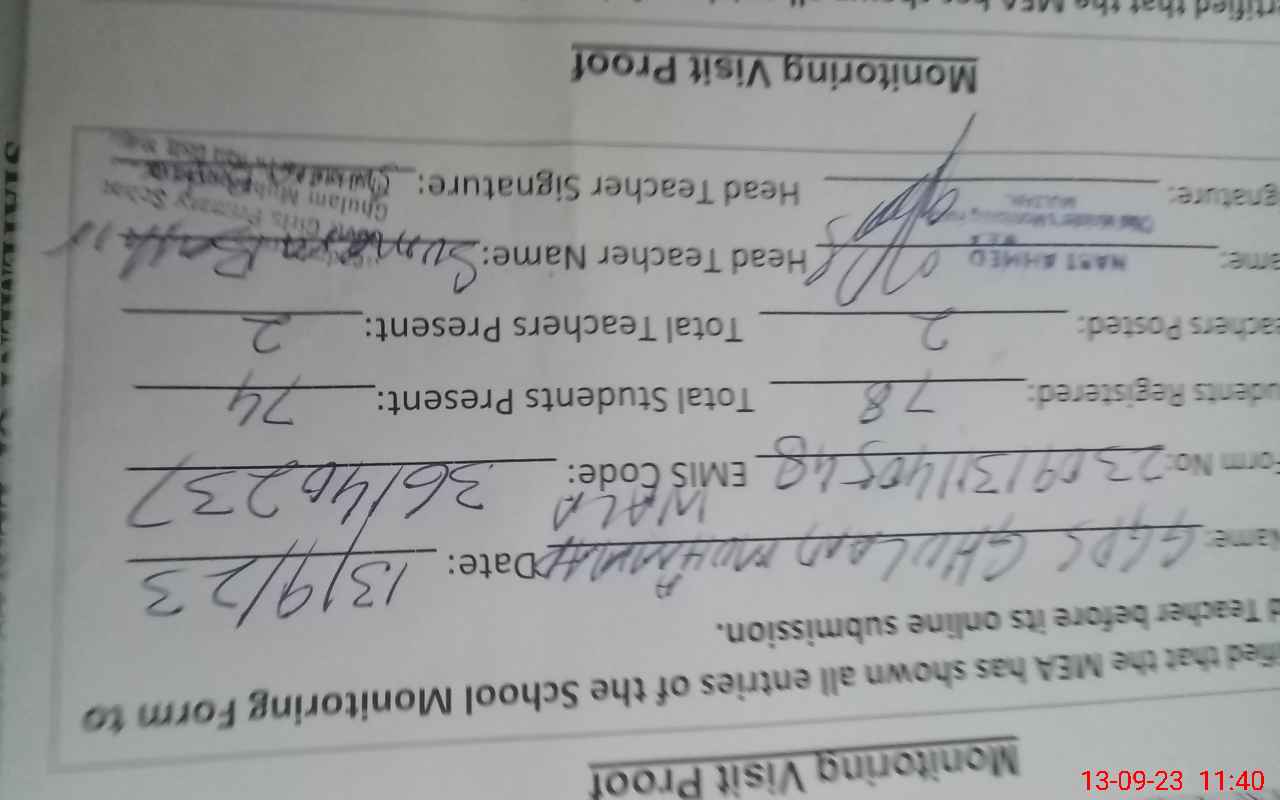 Monitoring Visit Proof
ified that the MEA has shown all entries of the School Monitoring Form to
d Teacher before its online submission.
ame: GGPS GHULAM MUHAMMAD WALA Date: 13/9/23
Form No: 230913114054 8 EMIS Code: 36140237
udents Registered: 78 Total Students Present: 74
achers Posted: 2 Total Teachers Present: 2
ame: NASI AHMED MEA Head Teacher Name: Sumera Bashir
gnature: Head Teacher Signature:
Girls Primary School
Ghulam Muha
Monitoring Visit Proof
rtified that the MEA has shown all
13-09-23 11:40